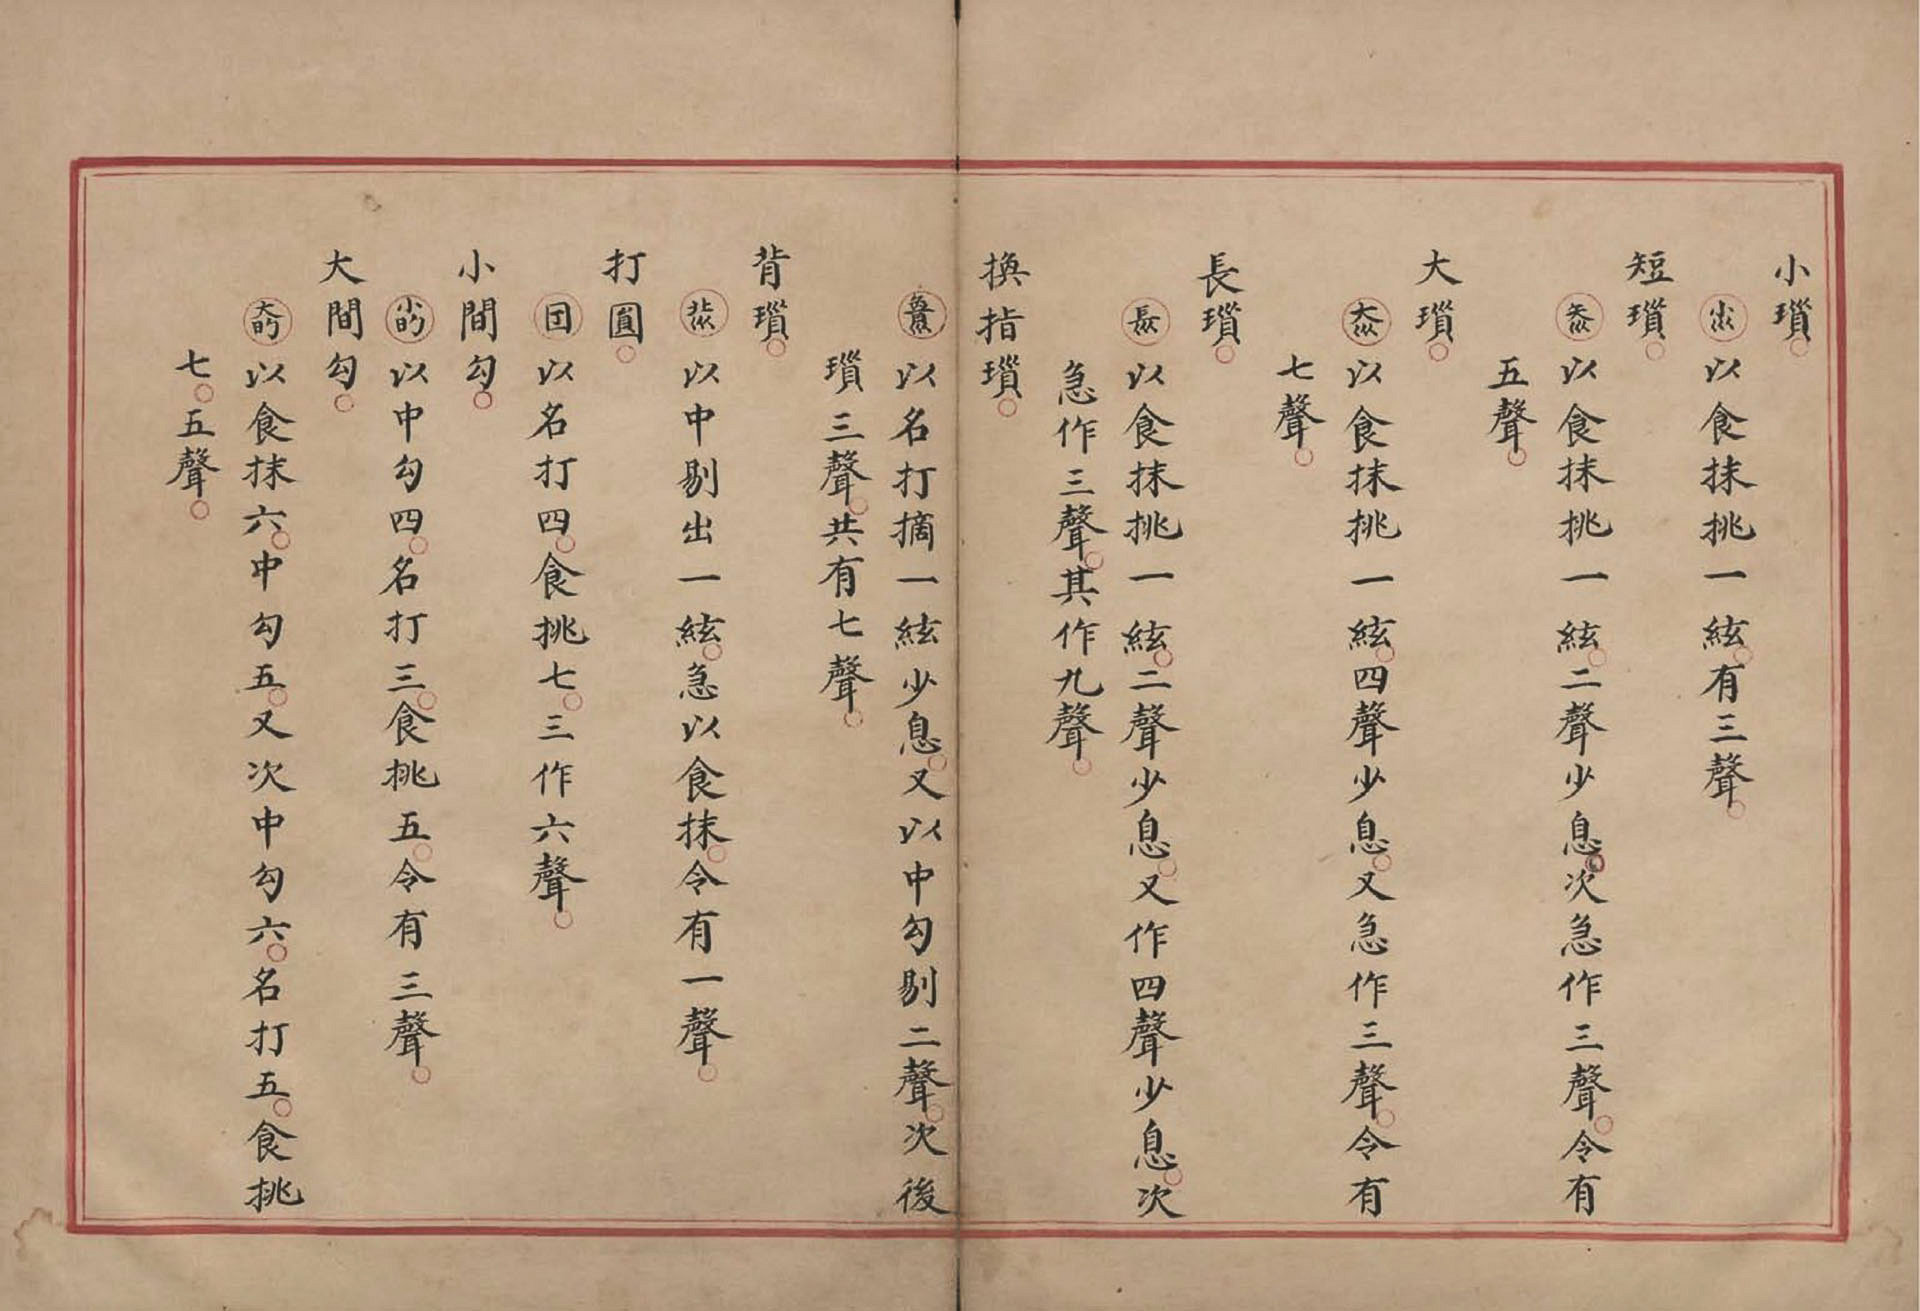 小瑣
以食抹挑一絃有三聲
短瑣
以食抹挑一絃二聲少息次急作三聲令有
五聲
大瑣
以食抹挑一絃四聲少息又急作三聲令有
七聲
長瑣
以食抹挑一絃二聲少息又作四聲少息次
急作三聲其作九聲
換指瑣
以名打摘一絃少息又以中勾剔二聲次後
瑣三聲共有七聲
背瑣
以中剔出一絃急以食抹令有一聲
打圓
以名打四食挑七三作六聲
小間勾
以中勾四名打三食挑五令有三聲
大間勾
以食抹六中勾五又次中勾六名打五食挑
七五聲